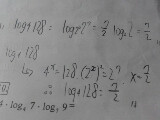 log₄128 = log₂²2⁷ = 7/2 log₂2 = 7/2
log₄128
4ˣ = 128 (2²)ˣ = 2⁷ x = 7/2
log₄128 = 7/2
4 · log₄ 7 · log₇ 9 =